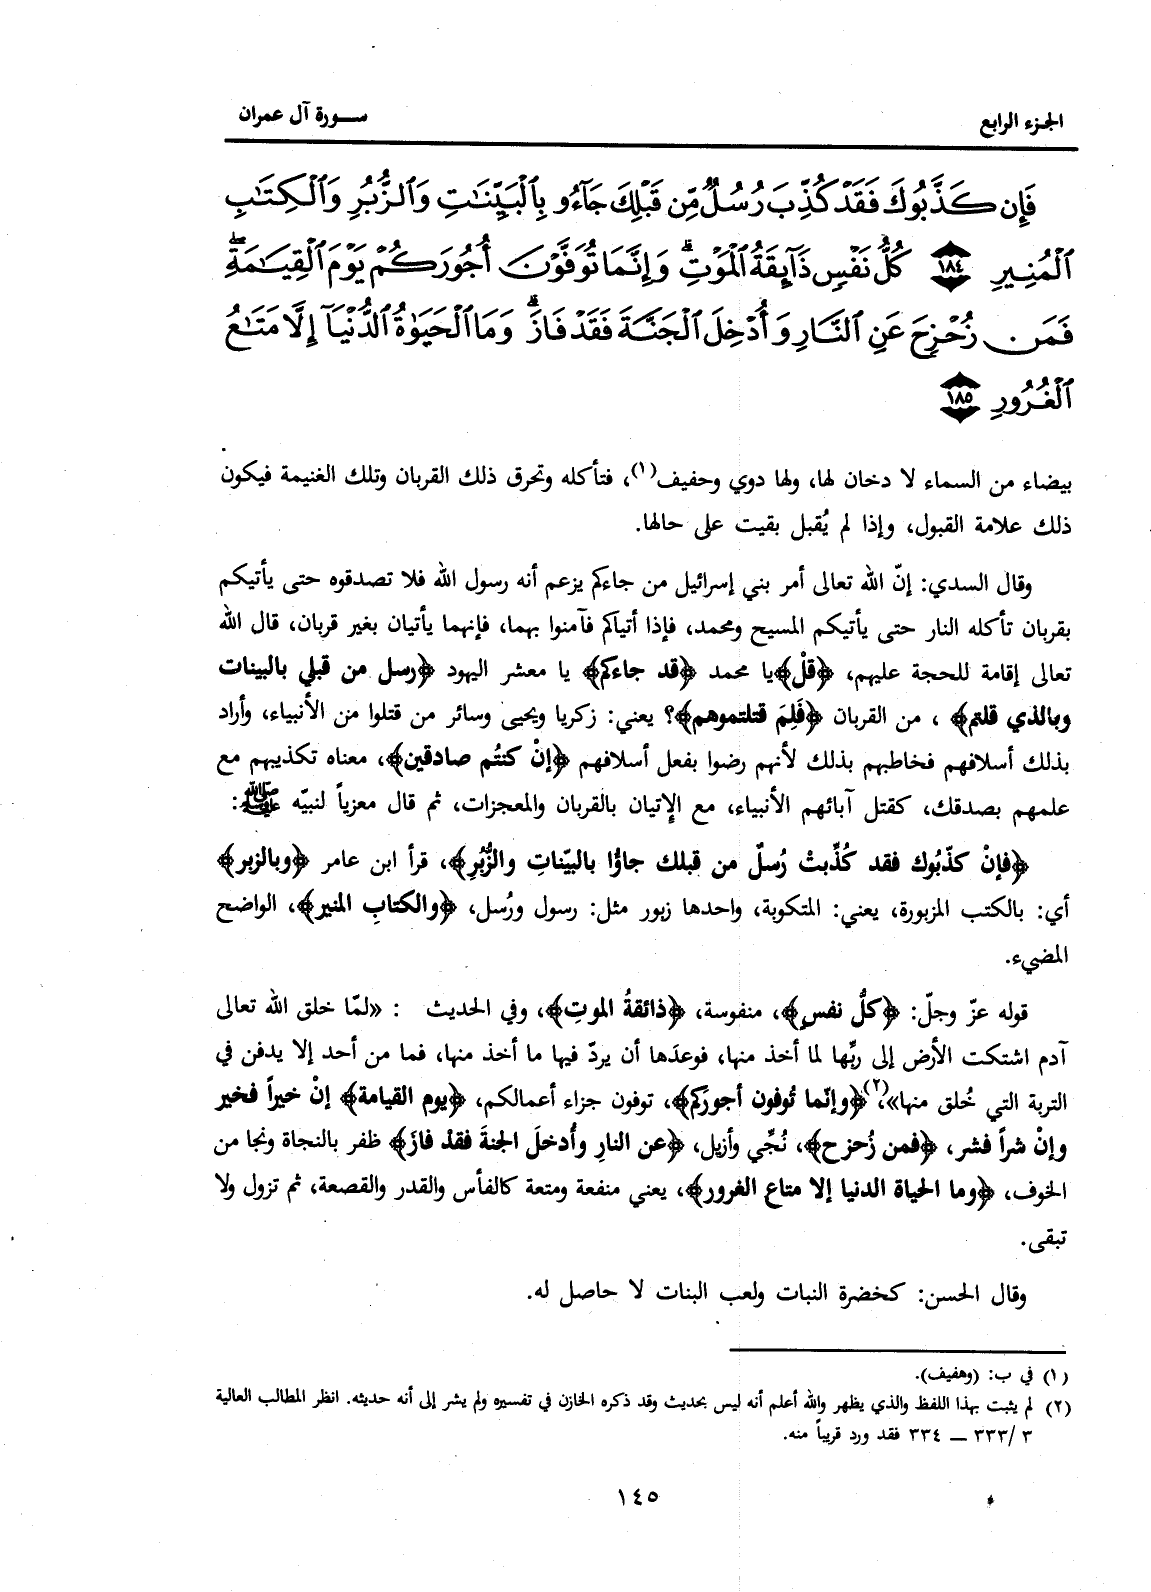 الجزء الرابع
سـورة آل عمران
فَإِن كَذَّبُوكَ فَقَدْ كُذِّبَ رُسُلٌ مِّن قَبْلِكَ جَآءُو بِٱلْبَيِّنَـٰتِ وَٱلزُّبُرِ وَٱلْكِتَـٰبِ
ٱلْمُنِيرِ ١٨٤ كُلُّ نَفْسٍ ذَآئِقَةُ ٱلْمَوْتِۗ وَإِنَّمَا تُوَفَّوْنَ أُجُورَكُمْ يَوْمَ ٱلْقِيَـٰمَةِۖ
فَمَن زُحْزِحَ عَنِ ٱلنَّارِ وَأُدْخِلَ ٱلْجَنَّةَ فَقَدْ فَازَۗ وَمَا ٱلْحَيَوٰةُ ٱلدُّنْيَآ إِلَّا مَتَـٰعُ
ٱلْغُرُورِ ١٨٥
بيضاء من السماء لا دخان لها، ولها دوي وحفيف(١)، فتأكله وتحرق ذلك القربان وتلك الغنيمة فيكون
ذلك علامة القبول، وإذا لم يُقبل بقيت على حالها.
وقال السدي: إنّ الله تعالى أمر بني إسرائيل من جاءكم يزعم أنه رسول الله فلا تصدقوه حتى يأتيكم
بقربان تأكله النار حتى يأتيكم المسيح ومحمد، فإذا أتياكم فآمنوا بهما، فإنهما يأتيان بغير قربان، قال الله
تعالى إقامة للحجة عليهم، ﴿قلْ﴾يا محمد ﴿قد جاءكم﴾ يا معشر اليهود ﴿رسل من قبلي بالبينات
وبالذي قلتم﴾ ، من القربان ﴿فَلِمَ قتلتموهم﴾؟ يعني: زكريا ويحيى وسائر من قتلوا من الأنبياء، وأراد
بذلك أسلافهم فخاطبهم بذلك لأنهم رضوا بفعل أسلافهم ﴿إنْ كنتُم صادقين﴾، معناه تكذيبهم مع
علمهم بصدقك، كقتل آبائهم الأنبياء، مع الإتيان بالقربان والمعجزات، ثم قال معزياً لنبيّه ﷺ:
﴿فإنْ كذّبوك فقد كُذِّبتْ رُسلٌ من قبلك جاؤا بالبيّناتِ والزُّبُرِ﴾، قرأ ابن عامر ﴿وبالزبر﴾
أي: بالكتب المزبورة، يعني: المتكوبة، واحدها زبور مثل: رسول ورُسل، ﴿والكتابِ المنير﴾، الواضح
المضيء.
قوله عزّ وجلّ: ﴿كلُّ نفسٍ﴾، منفوسة، ﴿ذائقةُ الموتِ﴾، وفي الحديث : «لمّا خلق الله تعالى
آدم اشتكت الأرض إلى ربِّها لما أخذ منها، فوعدَها أن يردّ فيها ما أخذ منها، فما من أحد إلا يدفن في
التربة التي خُلق منها»(٢)، ﴿وإنّما تُوفون أجورَكم﴾، توفون جزاء أعمالكم، ﴿يوم القيامة﴾ إنْ خيراً فخير
وإنْ شراً فشر، ﴿فمن زُحزح﴾، نُجِّي وأزيل، ﴿عن النارِ وأُدخلَ الجنةَ فقدْ فازَ﴾ ظفر بالنجاة ونجا من
الخوف، ﴿وما الحياة الدنيا إلا متاع الغرور﴾، يعني منفعة ومتعة كالفأس والقدر والقصعة، ثم تزول ولا
تبقى.
وقال الحسن: كخضرة النبات ولعب البنات لا حاصل له.
(١) في ب: (وهفيف).
(٢) لم يثبت بهذا اللفظ والذي يظهر والله أعلم أنه ليس بحديث وقد ذكره الخازن في تفسيره ولم يشر إلى أنه حديثه. انظر المطالب العالية
٣/ ٣٣٣ ــ ٣٣٤ فقد ورد قريباً منه.
١٤٥